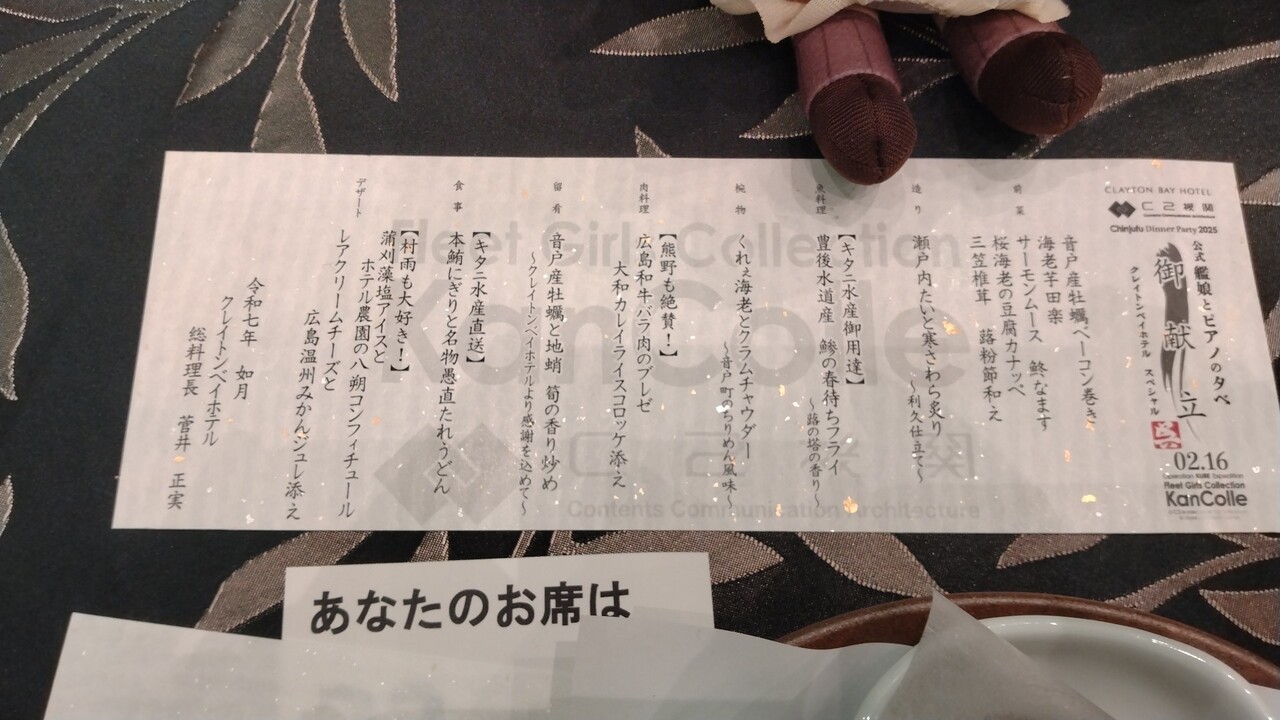 CLAYTON BAY HOTEL
C2機関
Chinjufu Dinner Party 2025
公式 艦娘とピアノの夕べ
御献立
クレイトンベイホテル スペシャル
02.16
Fleet Girls Collection
KanColle
前菜
音戸産牡蠣ベーコン巻き
海老芋田楽
サーモンムース 鯵なます
桜海老の豆腐カナッペ
三笠椎茸 蕗粉節和え
造り
瀬戸内たいと寒さわら炙り
~利久仕立て~
魚料理
【キタニ水産御用達】
豊後水道産 鯵の春待ちフライ
~蕗の塔の香り~
椀物
くれぇ海老とクラムチャウダー
~音戸町のちりめん風味~
肉料理
【熊野も絶賛!】
広島和牛バラ肉のブレゼ
大和カレイライスコロッケ添え
留肴
音戸産牡蠣と地蛸 筍の香り炒め
~クレイトンベイホテルより感謝を込めて~
食事
【キタニ水産直送】
本鮪にぎりと名物愚直たれうどん
デザート
【村雨も大好き!】
蒲刈藻塩アイスと
ホテル農園の八朔コンフィチュール
レアクリームチーズと
広島温州みかんジュレ添え
令和七年 如月
クレイトンベイホテル
総料理長 菅井 正実
Fleet Girls Collection
KanColle
C2機関
Contents Communication Architecture
あなたのお席は